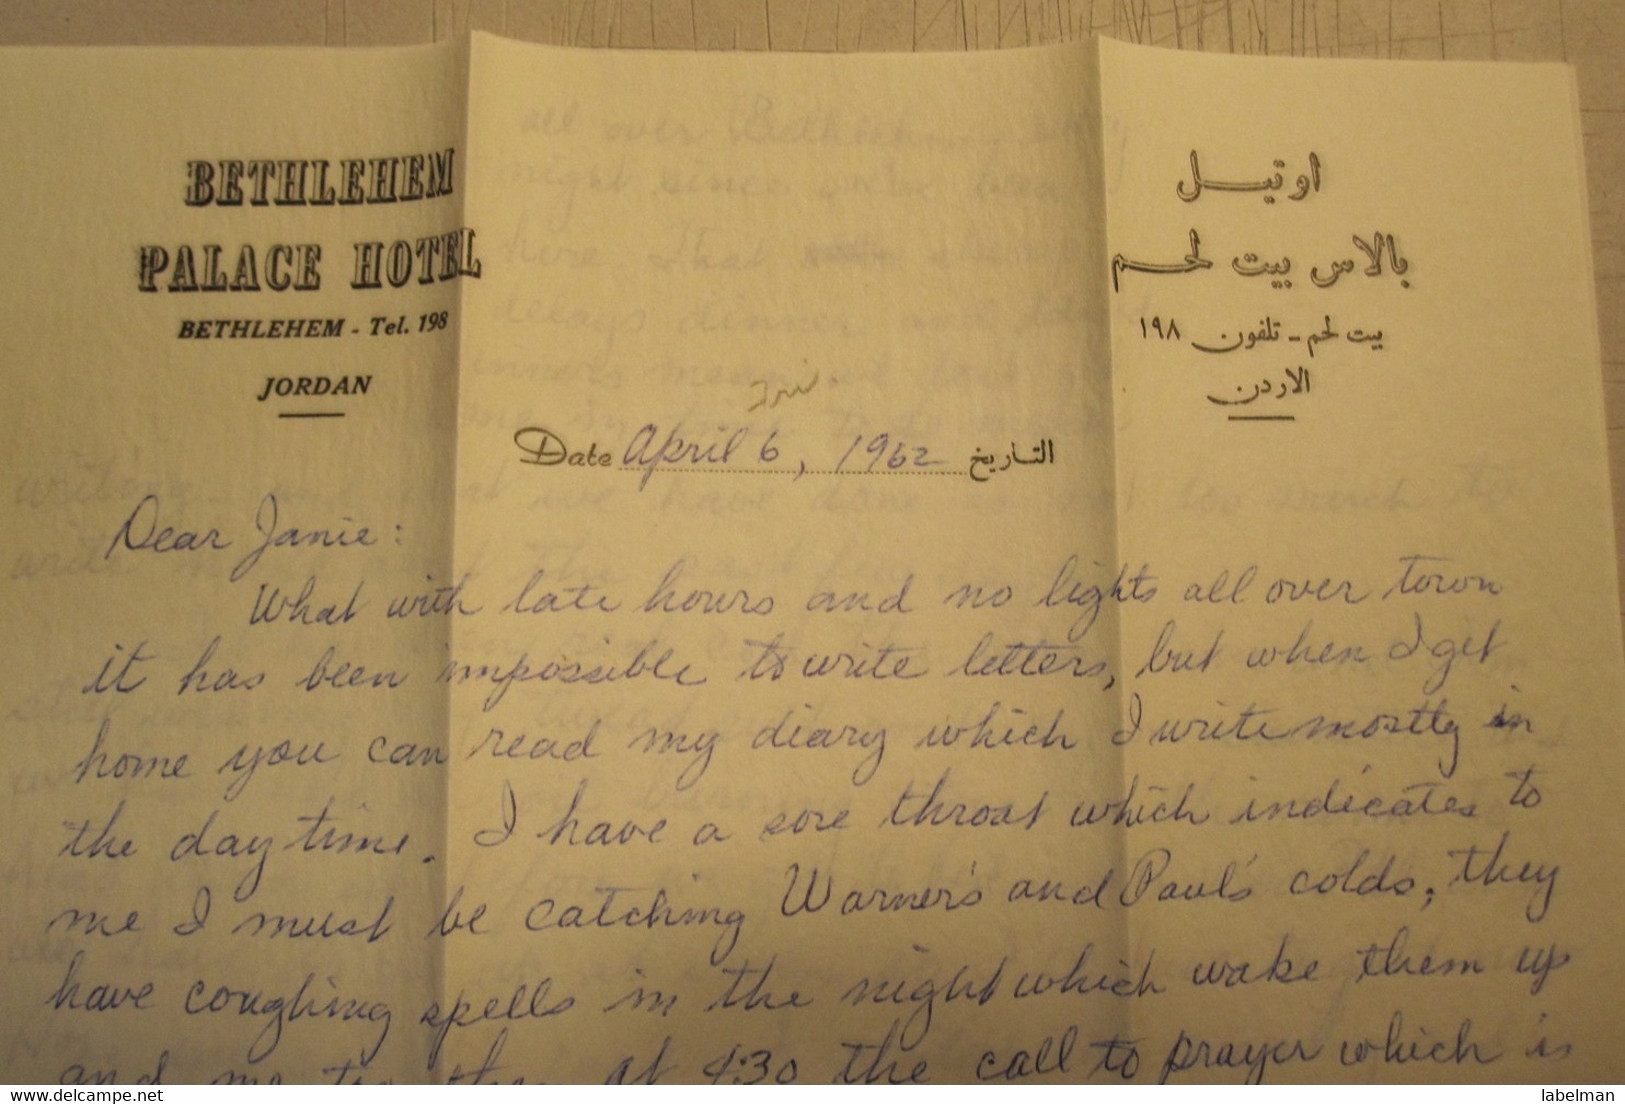 BETHLEHEM
PALACE HOTEL
BETHLEHEM - Tel. 198
JORDAN
اوتيل
بالاس بيت لحم
بيت لحم - تلفون ١٩٨
الاردن
Fri.
Date April 6, 1962 التاريخ
Dear Janie:
What with late hours and no lights all over town
it has been impossible to write letters, but when I get
home you can read my diary which I write mostly in
the daytime. I have a sore throat which indicates to
me I must be catching Warner's and Paul's colds; they
have coughing spells in the night which wake them up
and me too then at 4:30 the call to prayer which is
labelman